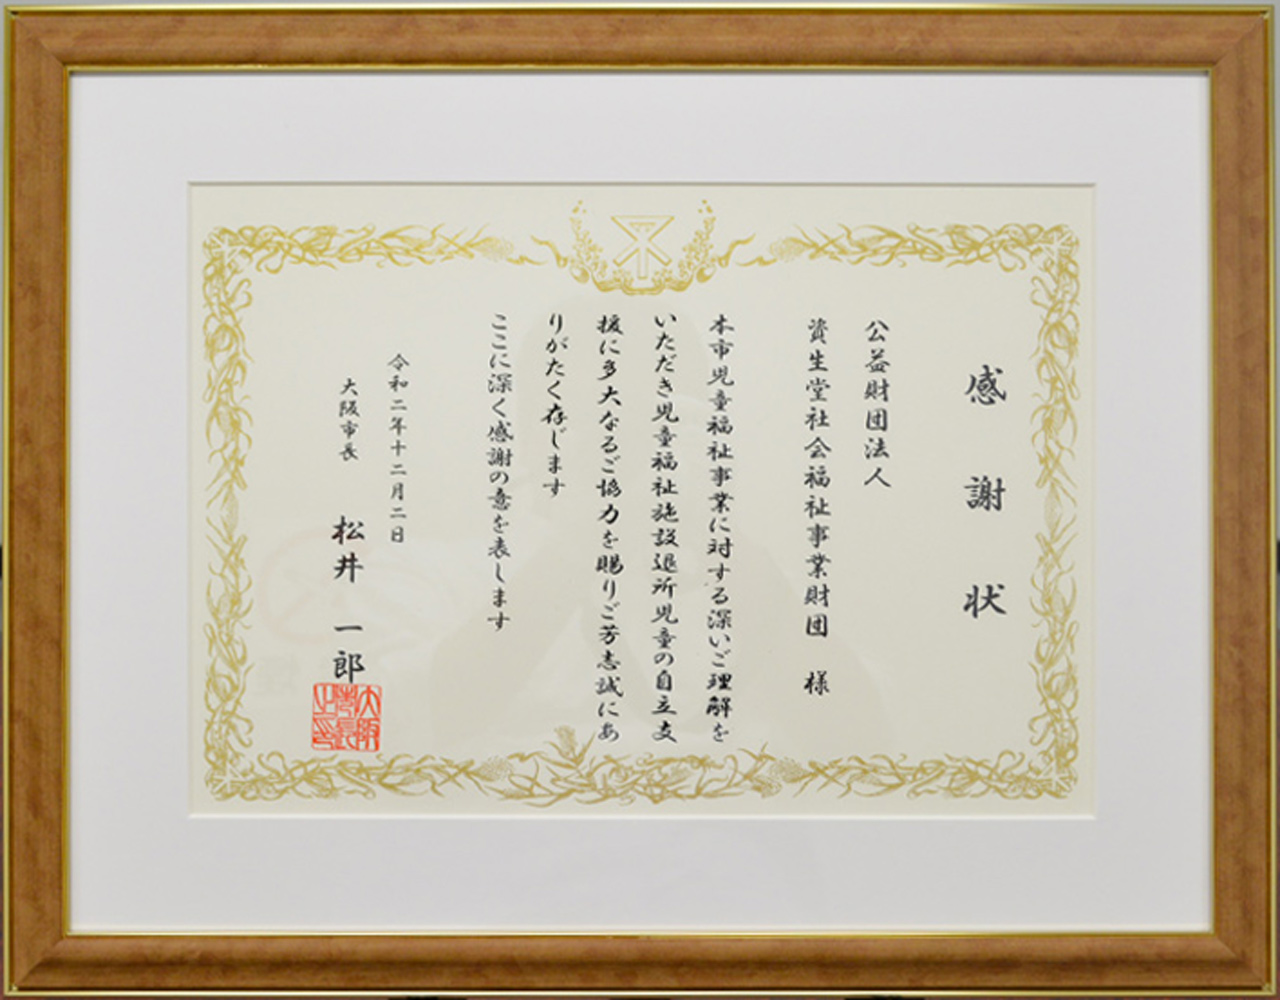 感謝状
公益財団法人
資生堂社会福祉事業財団 様
本市児童福祉事業に対する深いご理解を
いただき児童福祉施設退所児童の自立支
援に多大なるご協力を賜りご芳志誠にあ
りがたく存じます
ここに深く感謝の意を表します
令和二年十二月二日
大阪市長 松井 一郎
大阪市長之印